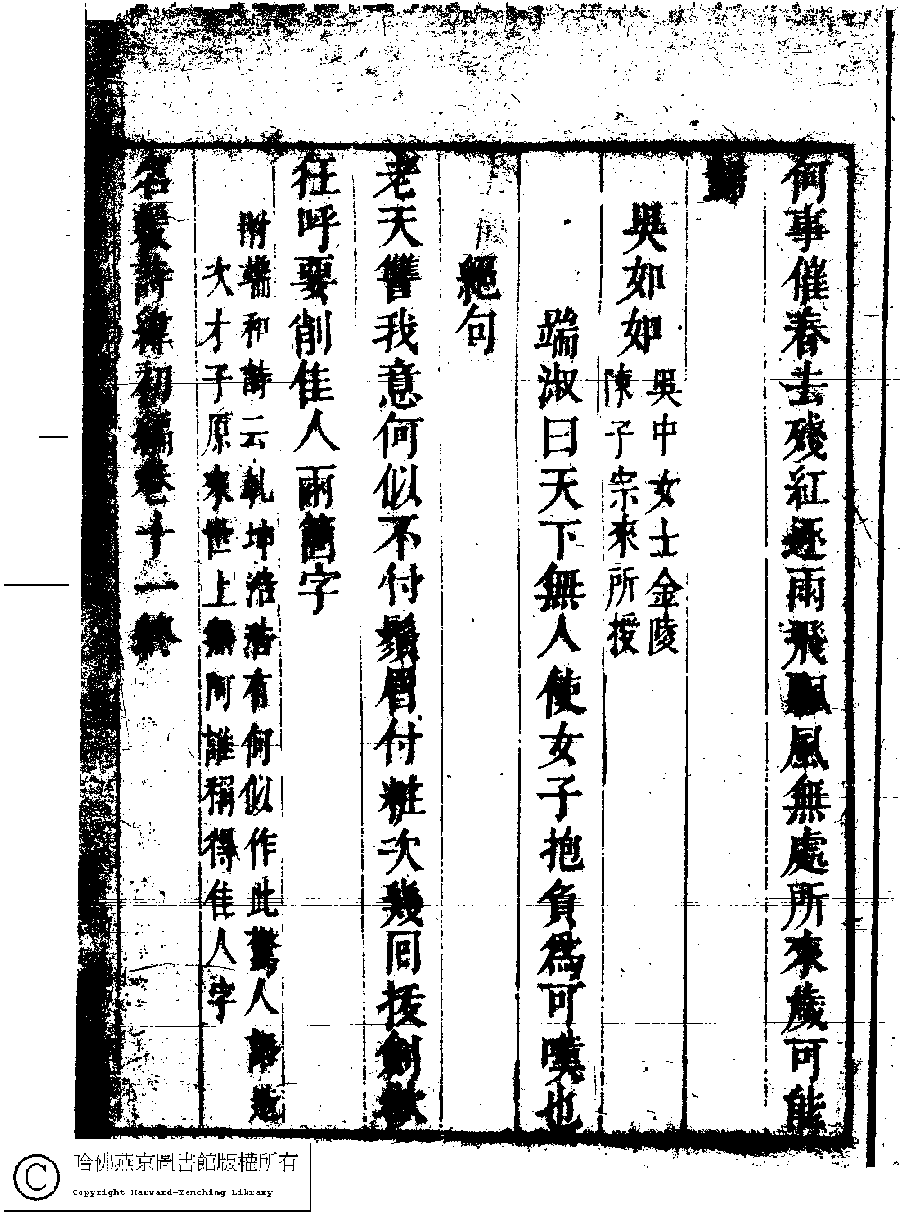 何事催春去殘紅逐雨飛飄風無處所來歲可能
歸
吳如如
吳中女士金陵
陳子宗來所授
端淑曰天下無人使女子抱負爲可嘆也
絕句
老天誓我意何似不付鬚眉付粧次幾回拔劍欲
狂呼要削佳人兩箇字
附端和詩云乾坤浩浩有何似作此驚人語
次才子原來世上無阿誰稱得佳人字
名媛詩緯初編卷十一終
哈佛燕京圖書館版權所有
Copyright Harvard-Yenching Library